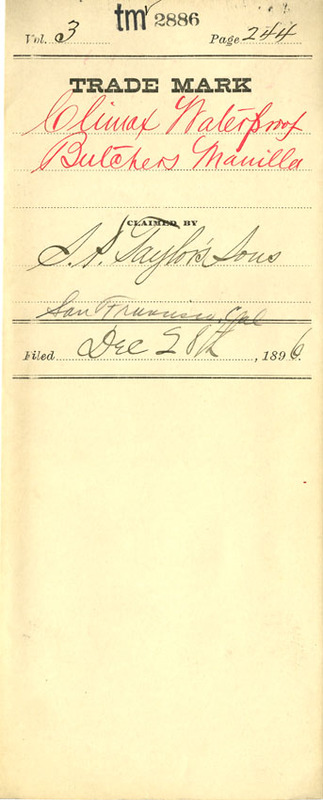 tm 2886
Vol. 3 Page 244
TRADE MARK
Climax Waterproof
Butchers Manilla
CLAIMED BY
S. P. Taylor's Sons
San Francisco, Cal
Filed Dec 28th, 1896.